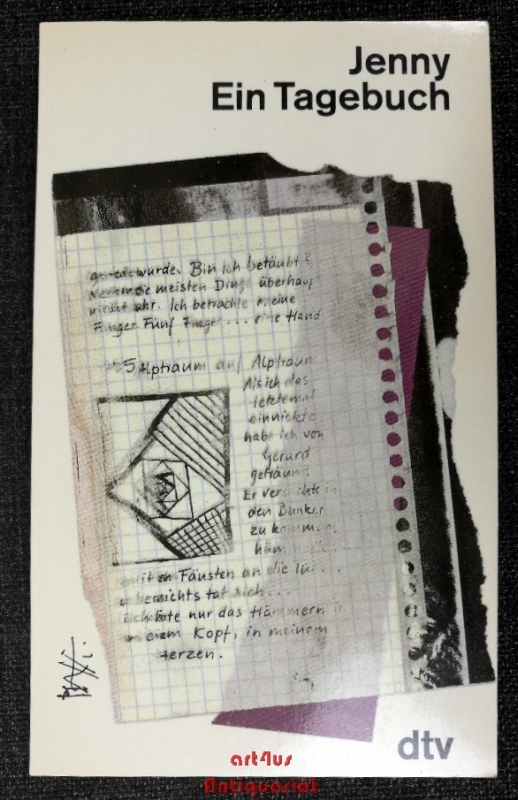 Jenny
Ein Tagebuch
wurde. Bin ich betäubt?
die meisten Dinge überhaupt
nicht wahr. Ich betrachte meine
Finger. Fünf Finger ... eine Hand
Alptraum auf Alptraum
Als ich das
letztemal
einnickte
habe ich von
Gerard
geträumt.
Er versuchte in
den Bunker
zu kommen,
mit den Fäusten an die
nichts tat sich ...
nur das Hämmern in
meinem Kopf, in meinem
Herzen.
dtv
art4us
Antiquariat